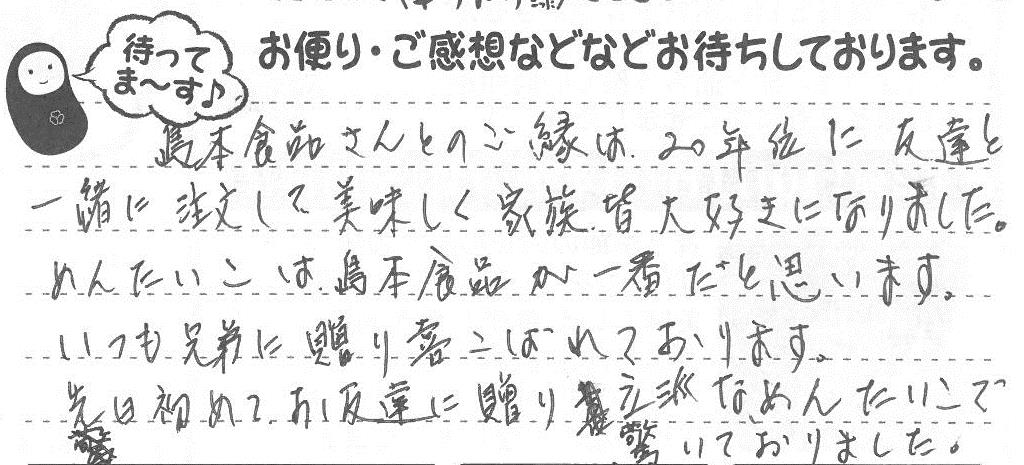 待って
ま〜す♪
お便り・ご感想などなどお待ちしております。
島本食品さんとのご縁は、20年位に友達と
一緒に注文して美味しく家族皆大好きになりました。
めんたいこは島本食品が一番だと思います。
いつも兄弟に贈り喜こばれております。
先日初めて、お友達に贈り立派なめんたいこで
驚いておりました。